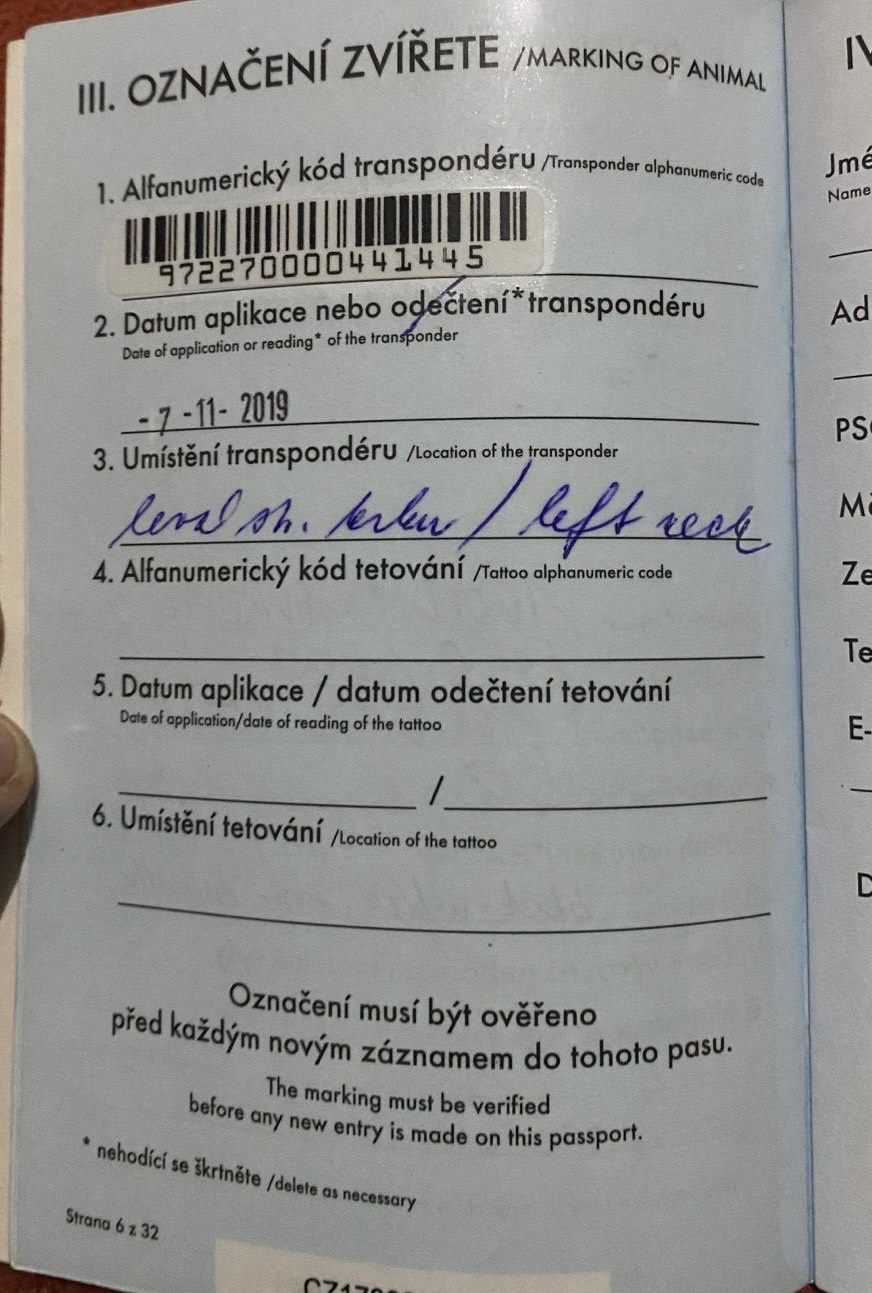 III. OZNAČENÍ ZVÍŘETE /MARKING OF ANIMAL
1. Alfanumerický kód transpondéru /Transponder alphanumeric code
972270000441445
2. Datum aplikace nebo odečtení* transpondéru
Date of application or reading* of the transponder
- 7 -11- 2019
3. Umístění transpondéru /Location of the transponder
/ left neck
4. Alfanumerický kód tetování /Tattoo alphanumeric code
5. Datum aplikace / datum odečtení tetování
Date of application/date of reading of the tattoo
/
6. Umístění tetování /Location of the tattoo
Označení musí být ověřeno
před každým novým záznamem do tohoto pasu.
The marking must be verified
before any new entry is made on this passport.
* nehodící se škrtněte /delete as necessary
Strana 6 z 32
IV
Jmé
Name
Ad
PS
Mě
Ze
Te
E-